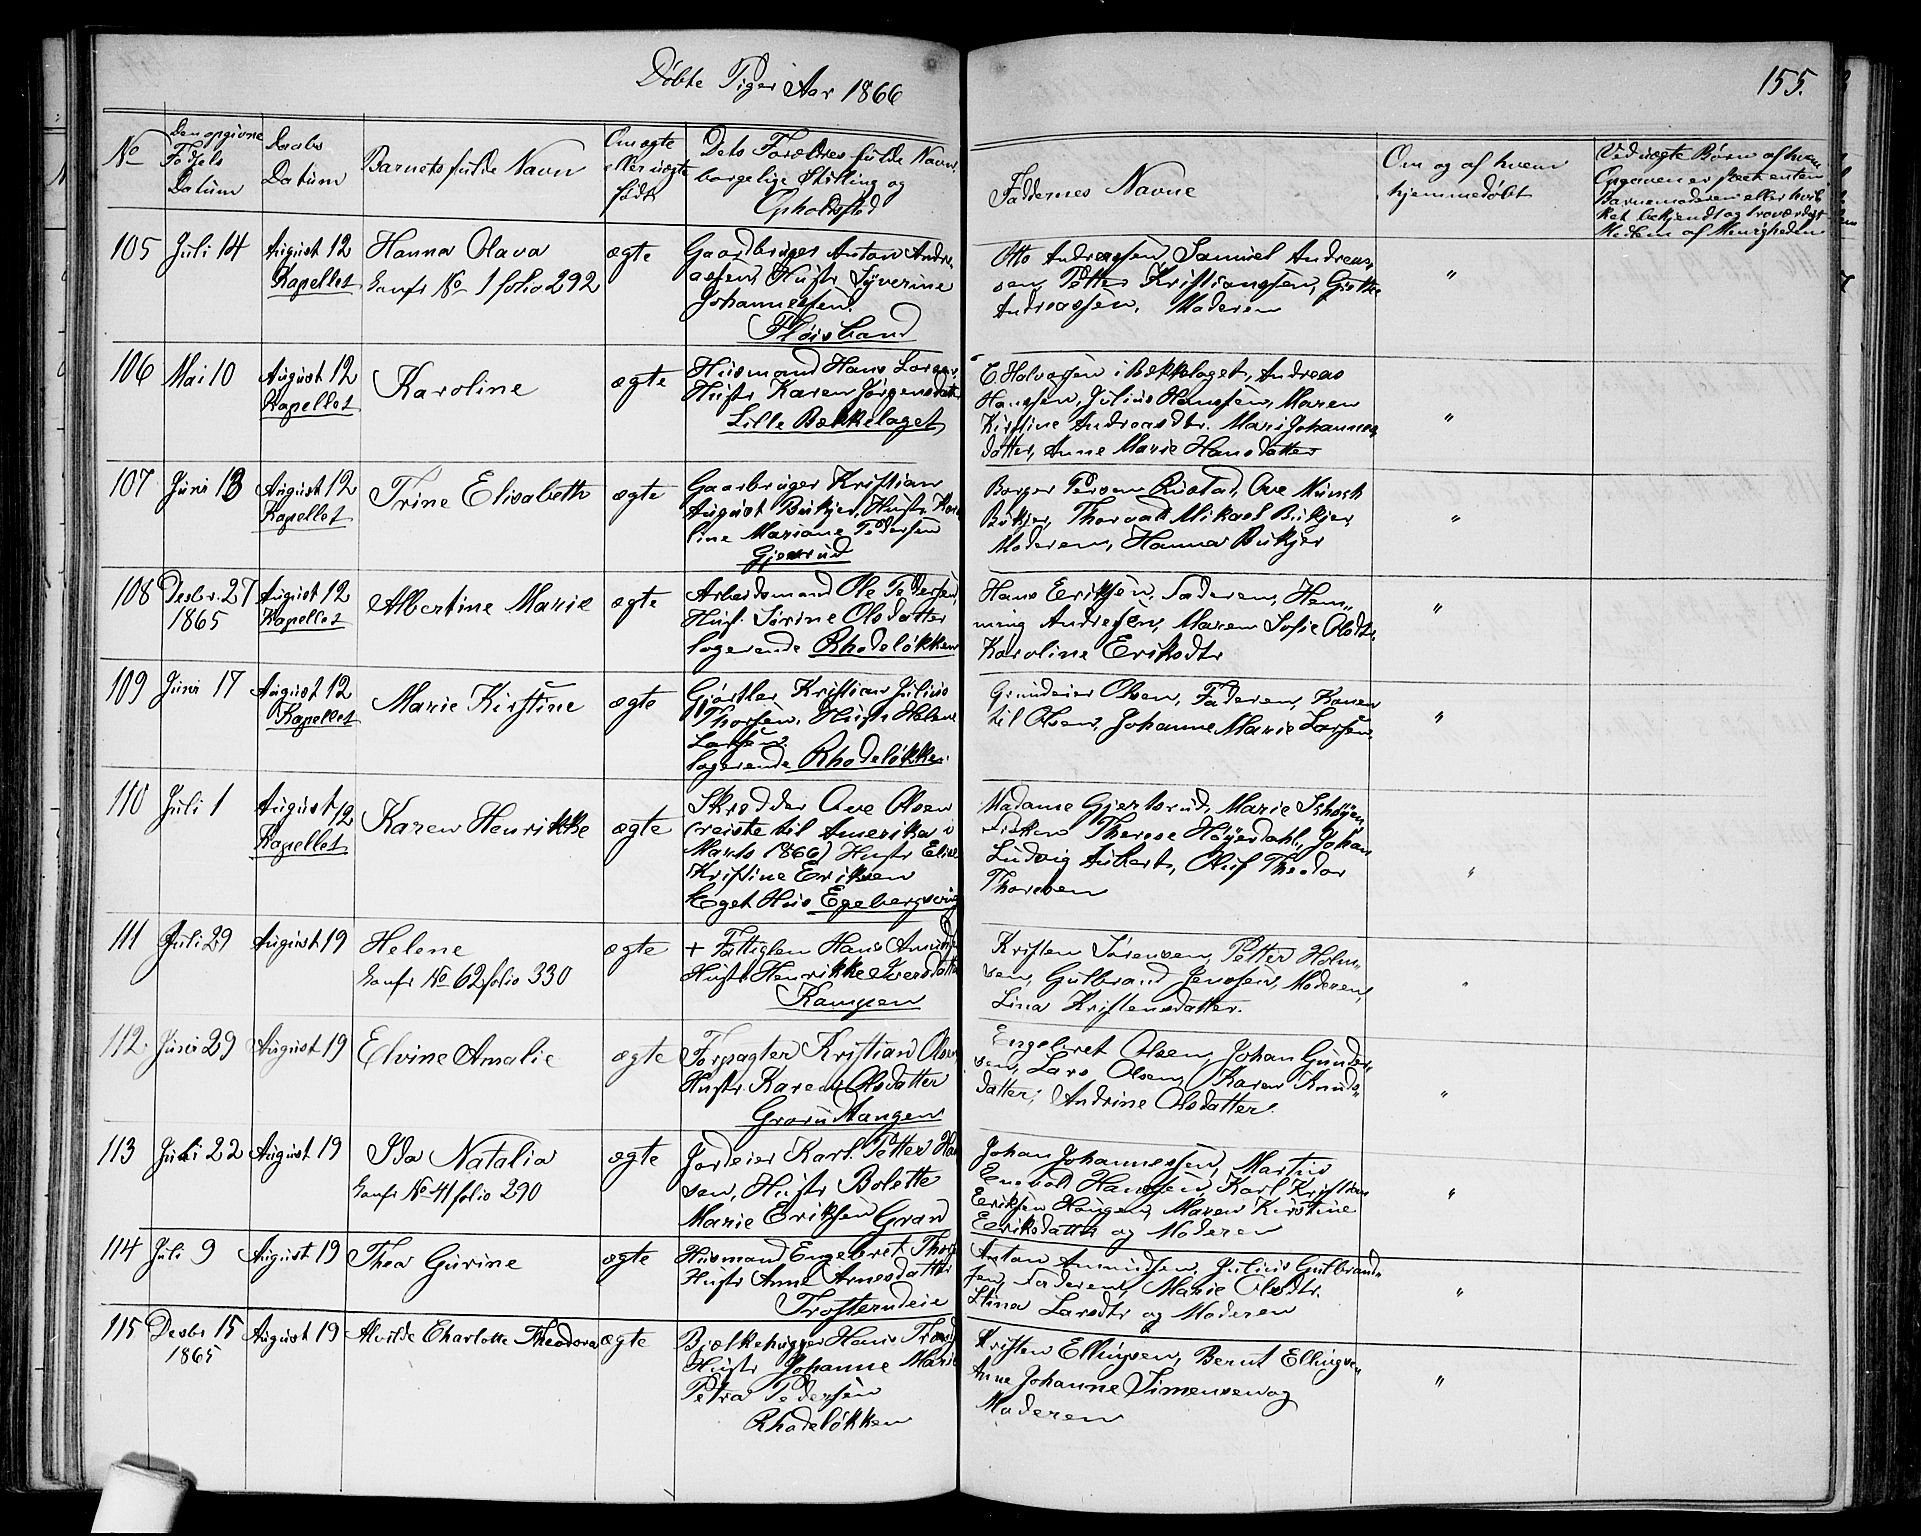 Døbte Piger Aar 1866
155.
No
Den opgivne Fødsels Datum
Daabs Datum
Barnets fulde Navn
Om ægte eller uægte født
Dets Forældres fulde Navn, borgelige Stilling og Opholdssted
Faddernes Navne
Om og af hvem hjemmedøbt
Ved uægte Børn af hvem Opgaven er skeet enten Barnemoderen eller hvilket bekjendt og troværdigt Medlem af Menigheden
105 Juli 14 August 12 Kapellet
Hanna Olava
Konfr No 1 folio 292
ægte
Gaardbruger Anton Andre-
assen, Hustr Syverine
Johannessen.
Fløisband
Otto Andreassen, Samuel Andreas-
sen, Petter Kristianssen, Grethe
Andreassen, Moderen
"
106 Mai 10 August 12 Kapellet
Karoline
ægte
Husmand Hans Larsen,
Hustr Karen Jørgensdatter
Lille Bækkelaget
E. Halvorsen i Bækkelaget, Andreas
Hanssen, Julius Hanssen, Maren
Kirstine Andreasdtr. Mari Johannes-
datter, Anne Marie Hansdatter
"
107 Juni 13 August 12 Kapellet
Trine Elisabeth
ægte
Gaarbruger Kristian
August Bukjer, Hustr Karo-
line Mariane Pedersen
Gjersrud
Borger Persen Rustad, Ove Munch
Bukjer, Thorvald Mikael Bukjer
Moderen, Hanna Bukjer
"
108 Desbr. 27 1865 August 12 Kapellet
Albertine Marie
ægte
Arbeidsmand Ole Pedersen,
Hust. Sørine Olsdatter
logerende Rhodeløkken
Hans Eriksen, Faderen, Hem-
ming Andresen, Maren Sofie Olsdtr.
Karoline Eriksdtr
"
109 Juni 17 August 12 Kapellet
Marie Kirstine
ægte
Gjørtler Kristian Julius
Thorsen, Hustr Helene
Larsen
logerende Rhodeløkken
Grundeier Olsen, Faderen, Konen
til Olsen, Johanne Marie Larsen.
"
110 Juli 1 August 12 Kapellet
Karen Henrikke
ægte
Skrædder Ove Olsen
(reiste til Amerika i
Marts 1866) Hustr Elise
Kristine Eriksen
Eget Hus Egebergsveien
Madame Gjertsrud, Marie Schøyen,
Frøken Therese Høyerdahl, Johan
Ludvig Aubert, Oluf Theodor
Thoresen
"
111 Juli 29 August 19
Helene
Konfr No 62 folio 330
ægte
+ Fattiglem Hans Amunds
Hustr Henrikke Iversdatter
Kampen
Kristen Sørensen, Petter Holm-
sen, Gulbrand Jenssen, Moderen,
Lina Kristensdatter.
"
112. Juni 29 August 19
Elvine Amalie
ægte
Forpagter Kristian Olsen
Hustr. Karen Olsdatter
Grorud Mangen
Engebret Olsen, Johan Gunder-
sen, Lars Olsen, Karen Knuds-
datter, Andrine Olsdatter.
"
113 Juli 22 August 19
Ida Natalia
Konfr No 41 folio 290
ægte
Jordeier Karl Petter Han-
sen, Hustr Bolette
Marie Eriksen Gran
Johan Johannessen, Martius
Engbolt Hanssen, Karl Kristian
Eriksen Haugen, Maren Kirstine
Eeriksdatter og Moderen
"
114 Juli 9 August 19
Thea Gurine
ægte
Husmand Engebret Thor
Hustr Anne Arnesdatter
Trosterudeie
Anton Amundsen, Julius Gulbrand-
sen, Faderen, Marie Olsdtr.
Stina Larsdtr og Moderen
"
115 Desbr 15 1865 August 19
Alvilde Charlotte Theodora
ægte
Bjelkehugger Hans Trond
Hustr Johanne Marie
Petra Pedersen
Rhodeløkken
Kristen Ellingsen, Bernt Ellingsen
Anne Johanne Simensen og
Moderen
"